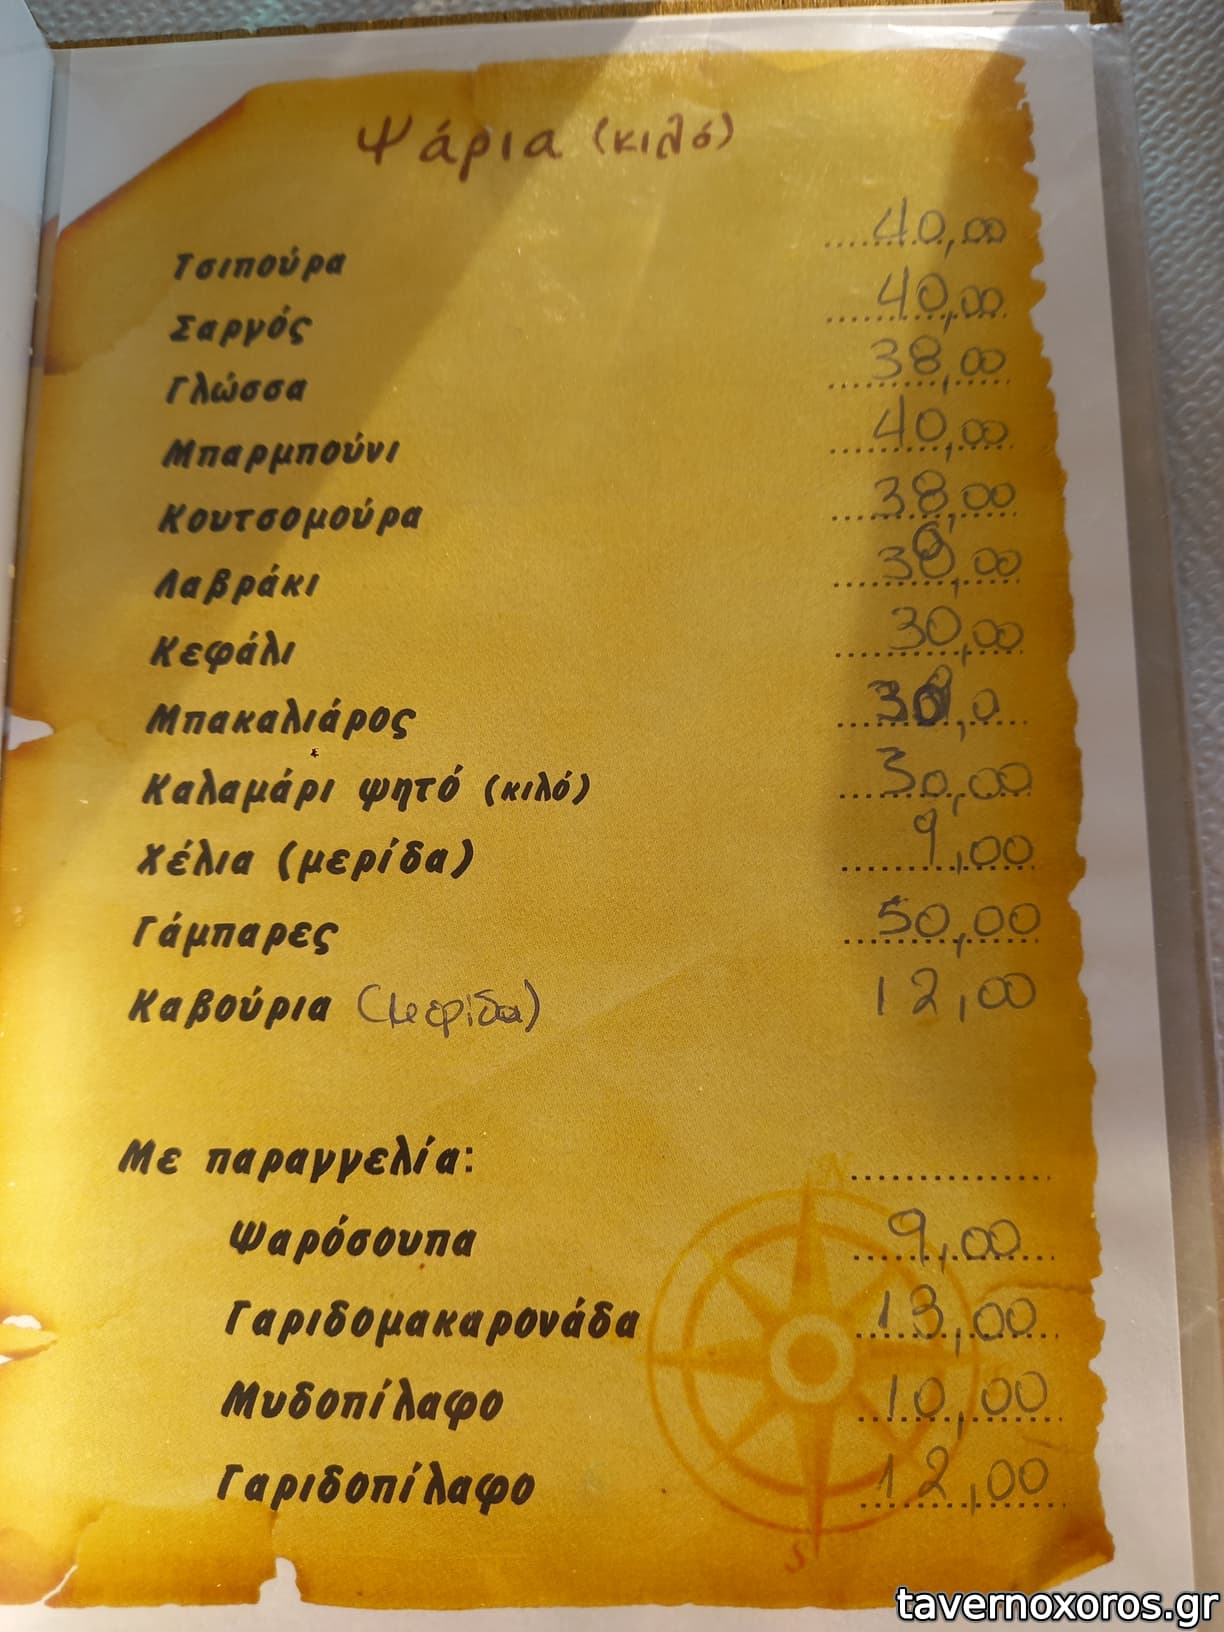 Ψάρια (κιλό)
Τσιπούρα ..... 40,00
Σαργός ..... 40,00
Γλώσσα ..... 38,00
Μπαρμπούνι ..... 40,00
Κουτσομούρα ..... 38,00
Λαβράκι ..... 38,00
Κεφάλι ..... 30,00
Μπακαλιάρος .....
Καλαμάρι ψητό (κιλό) ..... 30,00
Χέλια (μερίδα) ..... 9,00
Γάμπαρες ..... 50,00
Καβούρια (μερίδα) 12,00
Με παραγγελία: .....
Ψαρόσουπα ..... 9,00
Γαριδομακαρονάδα ..... 13,00
Μυδοπίλαφο ..... 10,00
Γαριδοπίλαφο ..... 12,00
S
tavernoxoros.gr